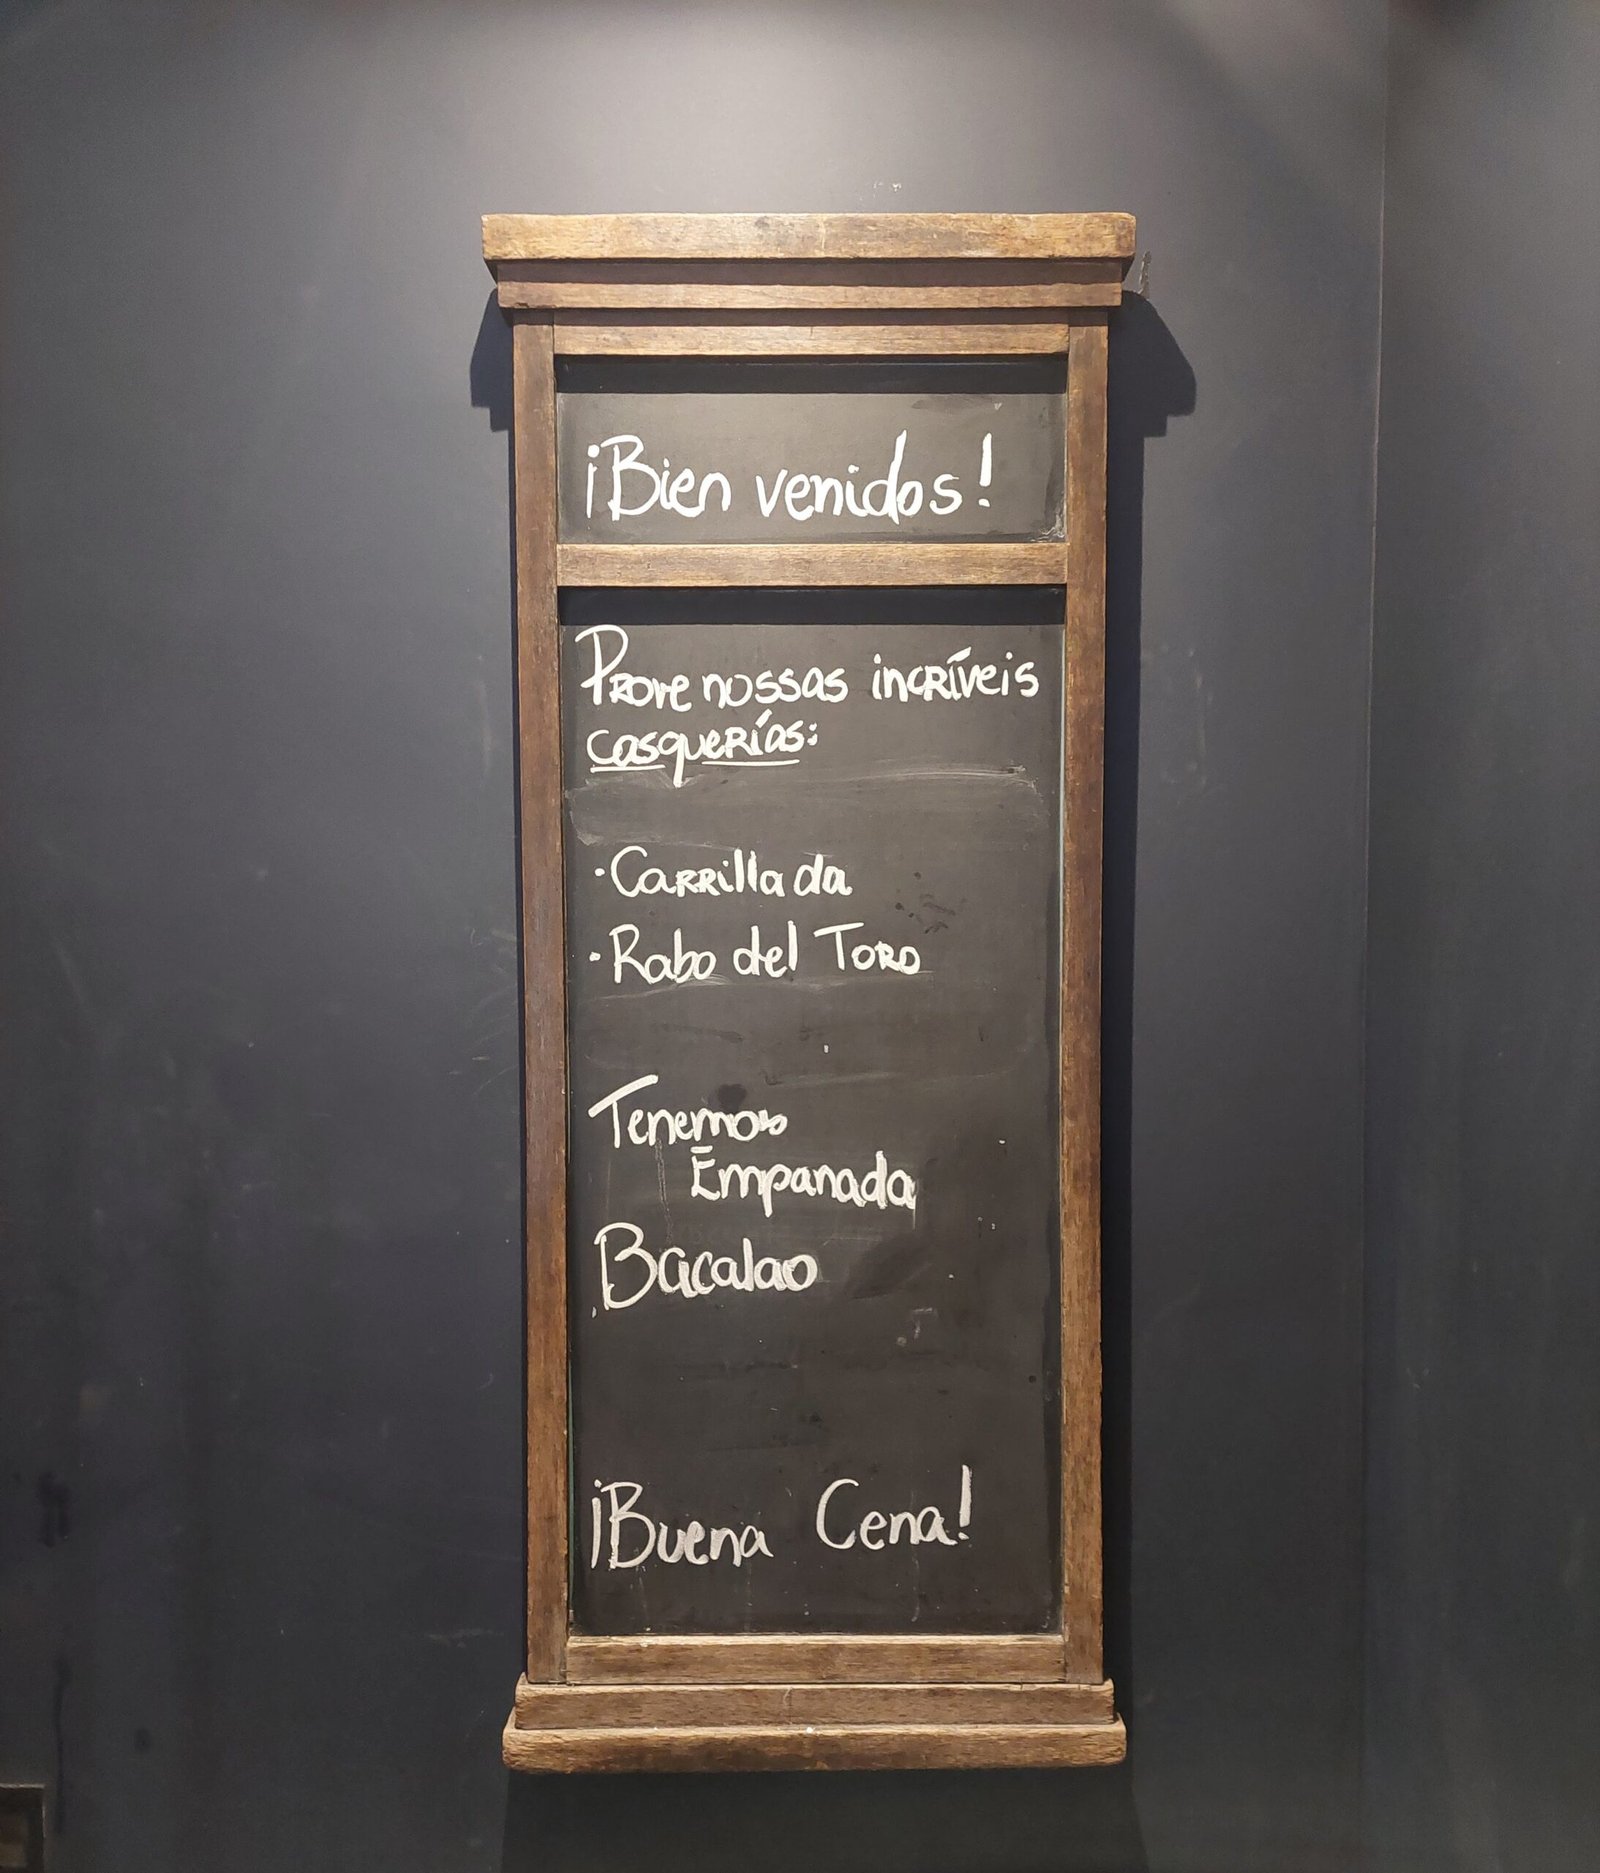 ¡Bien venidos!
Prove nossas incríveis
casquerías:
· Carrillada
· Rabo del Toro
Tenemos
Empanada
Bacalao
¡Buena Cena!